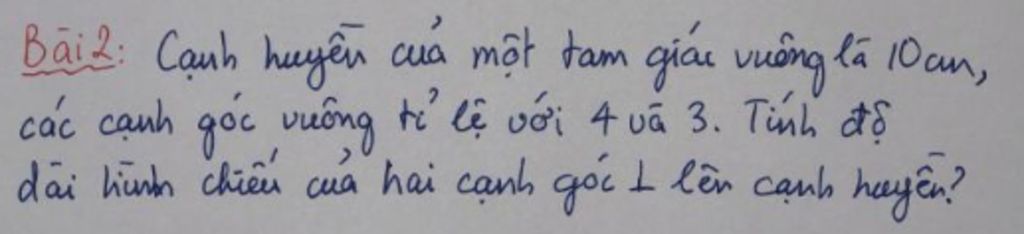 Bài 2: Cạnh huyền của một tam giác vuông là 10cm,
các cạnh góc vuông tỉ lệ với 4 và 3. Tính độ
dài hình chiếu của hai cạnh góc ⊥ lên cạnh huyền?